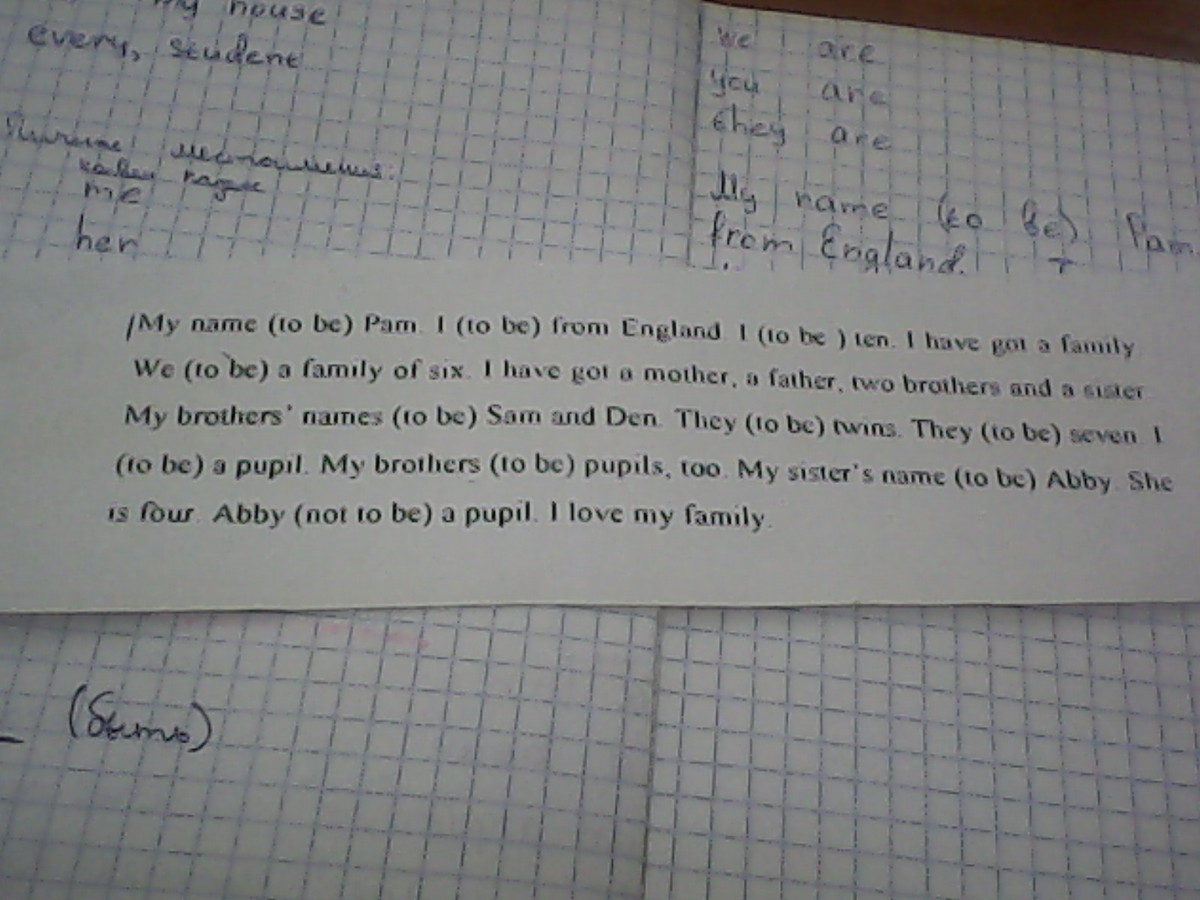 my house
every, student
Личные местоимения:
me
her
we are
you are
they are
My name (to be) Pam.
from England. I
My name (to be) Pam. I (to be) from England. I (to be ) ten. I have got a family.
We (to be) a family of six. I have got a mother, a father, two brothers and a sister.
My brothers' names (to be) Sam and Den. They (to be) twins. They (to be) seven. I
(to be) a pupil. My brothers (to be) pupils, too. My sister's name (to be) Abby. She
is four. Abby (not to be) a pupil. I love my family.
(быть)